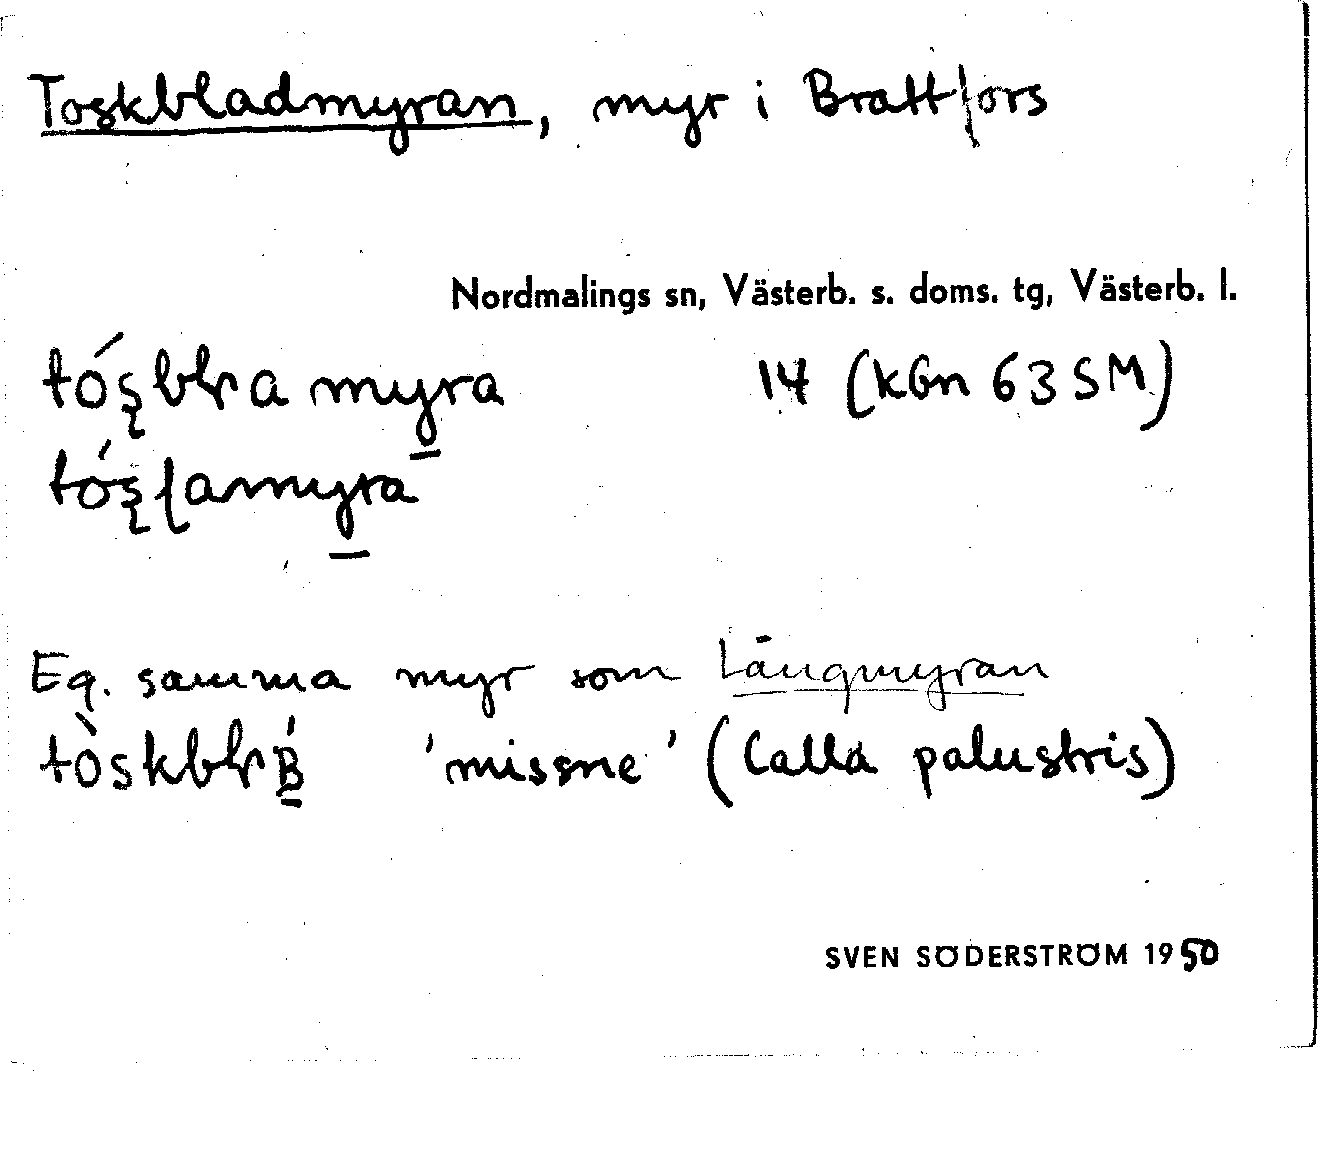 Toskbladmyran, myr i Brattfors
Nordmalings sn, Västerb. s. doms. tg, Västerb. l.
14 (kbn 63 SM)
Eg. samma myr som Långmyran
'missne' (Calla palustris)
SVEN SÖDERSTRÖM 1950